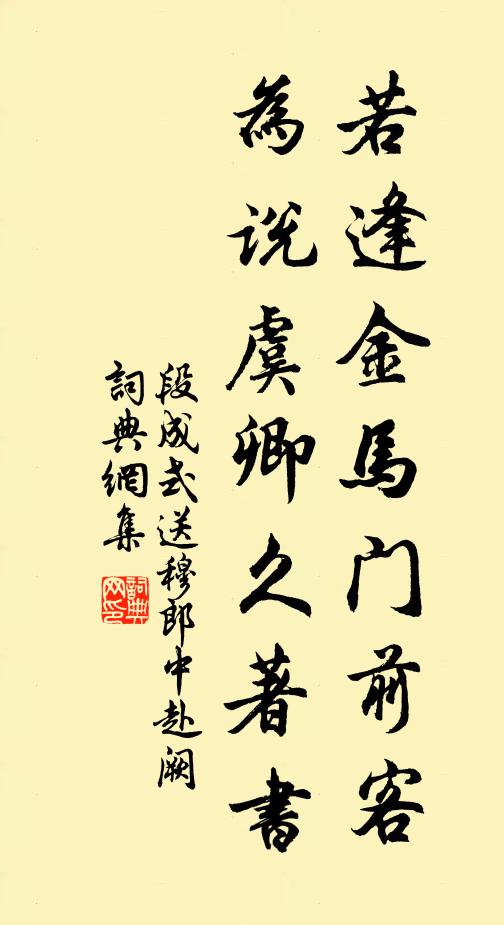 若逢金馬门前客
為说虞卿久著書
段成式送穆郎中赴阙
詞典網集
詞典网印